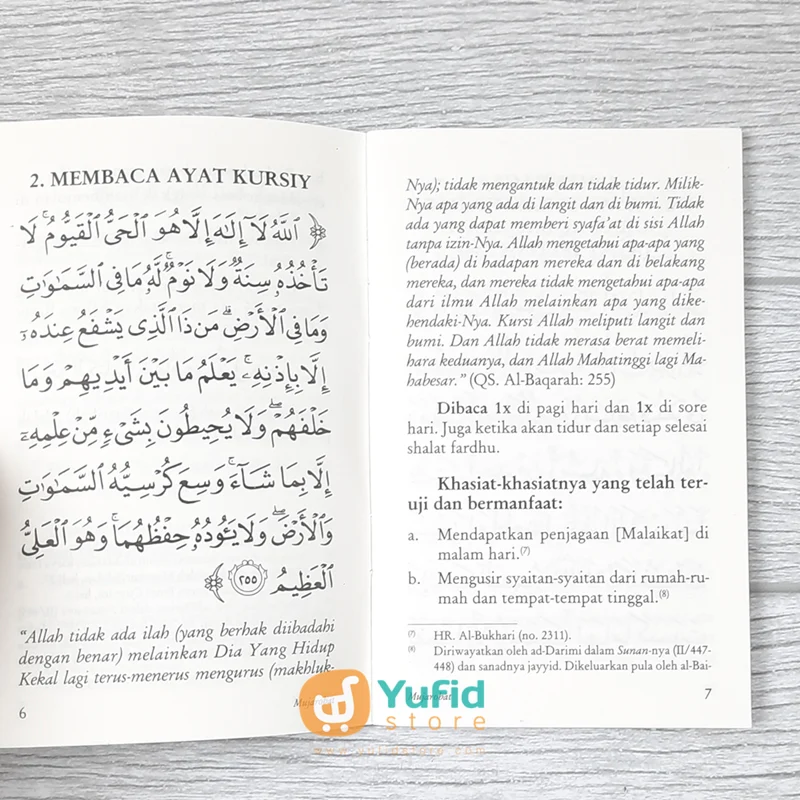 2. MEMBACA AYAT KURSIY
﴿ ٱللَّهُ لَآ إِلَٰهَ إِلَّا هُوَ ٱلْحَىُّ ٱلْقَيُّومُ ۚ لَا
تَأْخُذُهُۥ سِنَةٌ وَلَا نَوْمٌ ۚ لَّهُۥ مَا فِى ٱلسَّمَٰوَٰتِ
وَمَا فِى ٱلْأَرْضِ ۗ مَن ذَا ٱلَّذِى يَشْفَعُ عِندَهُۥٓ
إِلَّا بِإِذْنِهِۦ ۚ يَعْلَمُ مَا بَيْنَ أَيْدِيهِمْ وَمَا
خَلْفَهُمْ ۖ وَلَا يُحِيطُونَ بِشَىْءٍ مِّنْ عِلْمِهِۦٓ
إِلَّا بِمَا شَآءَ ۚ وَسِعَ كُرْسِيُّهُ ٱلسَّمَٰوَٰتِ
وَٱلْأَرْضَ ۖ وَلَا يَـُٔودُهُۥ حِفْظُهُمَا ۚ وَهُوَ ٱلْعَلِىُّ
ٱلْعَظِيمُ ٢٥٥ ﴾
“Allah tidak ada ilah (yang berhak diibadahi
dengan benar) melainkan Dia Yang Hidup
Kekal lagi terus-menerus mengurus (makhluk-
6
Nya); tidak mengantuk dan tidak tidur. Milik-
Nya apa yang ada di langit dan di bumi. Tidak
ada yang dapat memberi syafa'at di sisi Allah
tanpa izin-Nya. Allah mengetahui apa-apa yang
(berada) di hadapan mereka dan di belakang
mereka, dan mereka tidak mengetahui apa-apa
dari ilmu Allah melainkan apa yang dike-
hendaki-Nya. Kursi Allah meliputi langit dan
bumi. Dan Allah tidak merasa berat memeli-
hara keduanya, dan Allah Mahatinggi lagi Ma-
habesar.” (QS. Al-Baqarah: 255)
Dibaca 1x di pagi hari dan 1x di sore
hari. Juga ketika akan tidur dan setiap selesai
shalat fardhu.
Khasiat-khasiatnya yang telah ter-
uji dan bermanfaat:
a. Mendapatkan penjagaan [Malaikat] di
malam hari.(7)
b. Mengusir syaitan-syaitan dari rumah-ru-
mah dan tempat-tempat tinggal.(8)
(7) HR. Al-Bukhari (no. 2311).
(8) Diriwayatkan oleh ad-Darimi dalam Sunan-nya (II/447-
448) dan sanadnya jayyid. Dikeluarkan pula oleh al-Bai-
7
Yufid
store
www.yufidstore.com